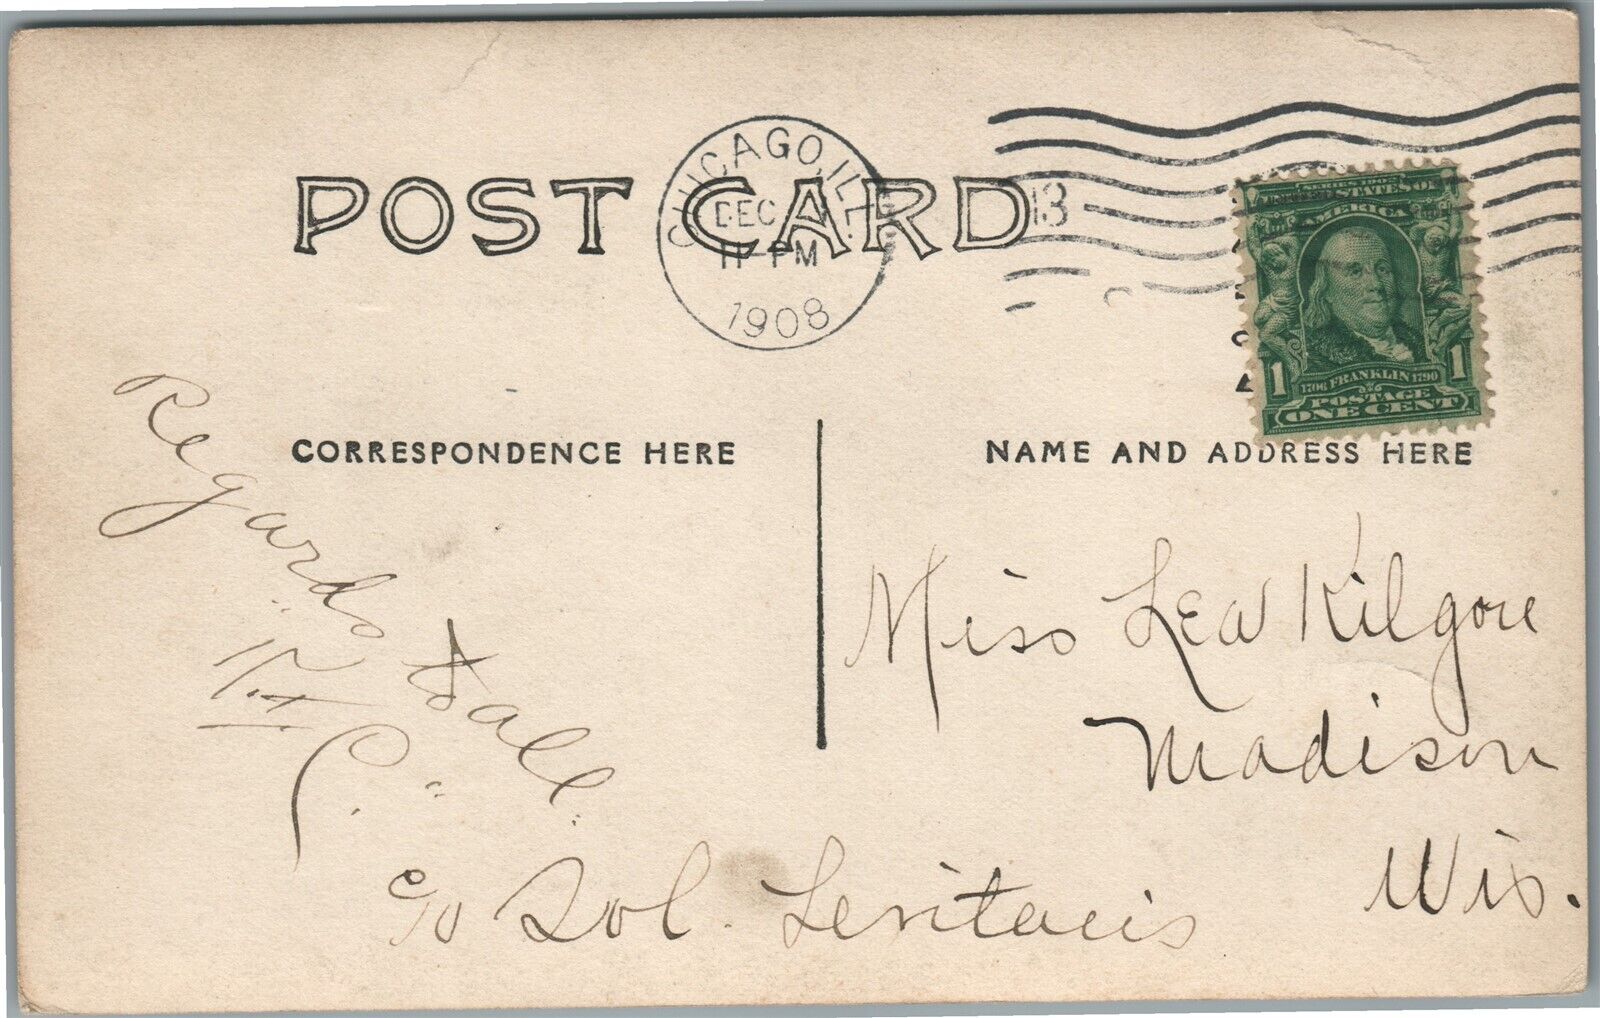 POST CARD
CHICAGO, ILL.
DEC
11-PM
1908
13
UNITED STATES OF
AMERICA
1 1706 FRANKLIN 1790 1
POSTAGE
ONE CENT
CORRESPONDENCE HERE
NAME AND ADDRESS HERE
Regards to all.
Miss Lea Kilgore
Madison
Wis.
c/o Sol. Levitacis